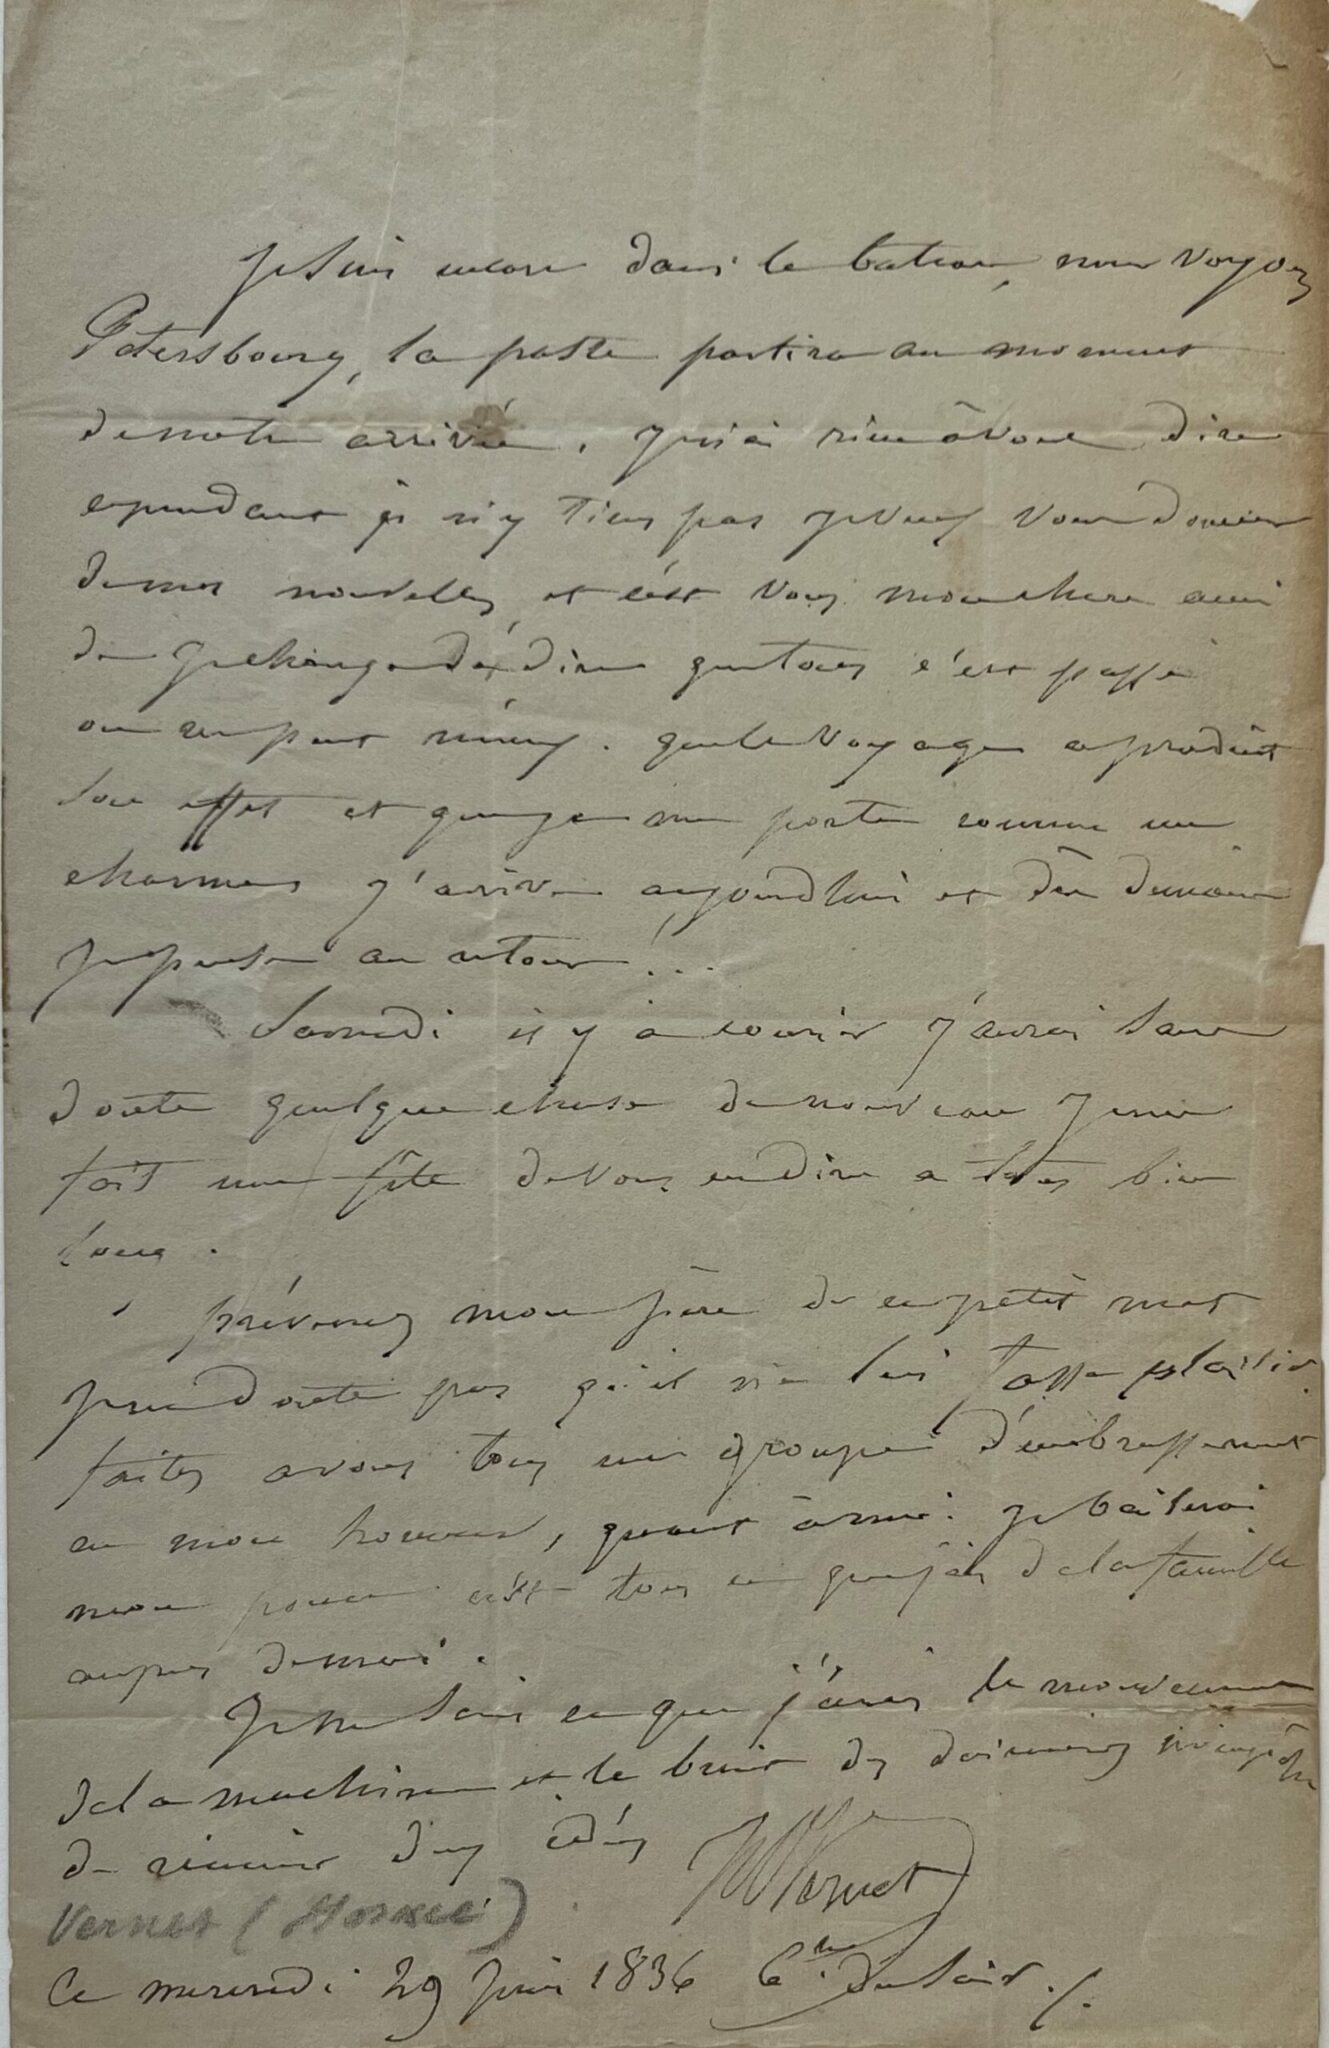 Je suis encore dans le bateau, nous voyons
Petersbourg, la poste partira au moment
de notre arrivée. Je n'ai rien à vous dire
cependant je n'y tiens pas je veux vous donner
de mes nouvelles et c'est vous mon chere ami
de dire que tous c'est passé
on ne peut mieux. que le voyage a produit
son effet et que je me porte comme un
charmes j'arrive aujourdhui et dès demain
je pense au retour...
Samedi il y à courier j'aurai sans
doute quelque chose de nouveau je me
fait une fête de vous en dire a tous bien
long.
prévenez mon père de ce petit mot
je ne doute pas qu'il ne lui fasse plaisir
faites avous tous un groupe d'embrassement
en mon honneur, quant à moi. je baiserai
mon pouce c'est tous ce que j'ai de la famille
aupres de moi.
Je ne sais ce que j'écris le mouvement
de la machine et le bruit des
de réunir deux idées
HVernet
Vernet (Horace)
Ce mercredi 29 juin 1836 6 h. du soir ./.